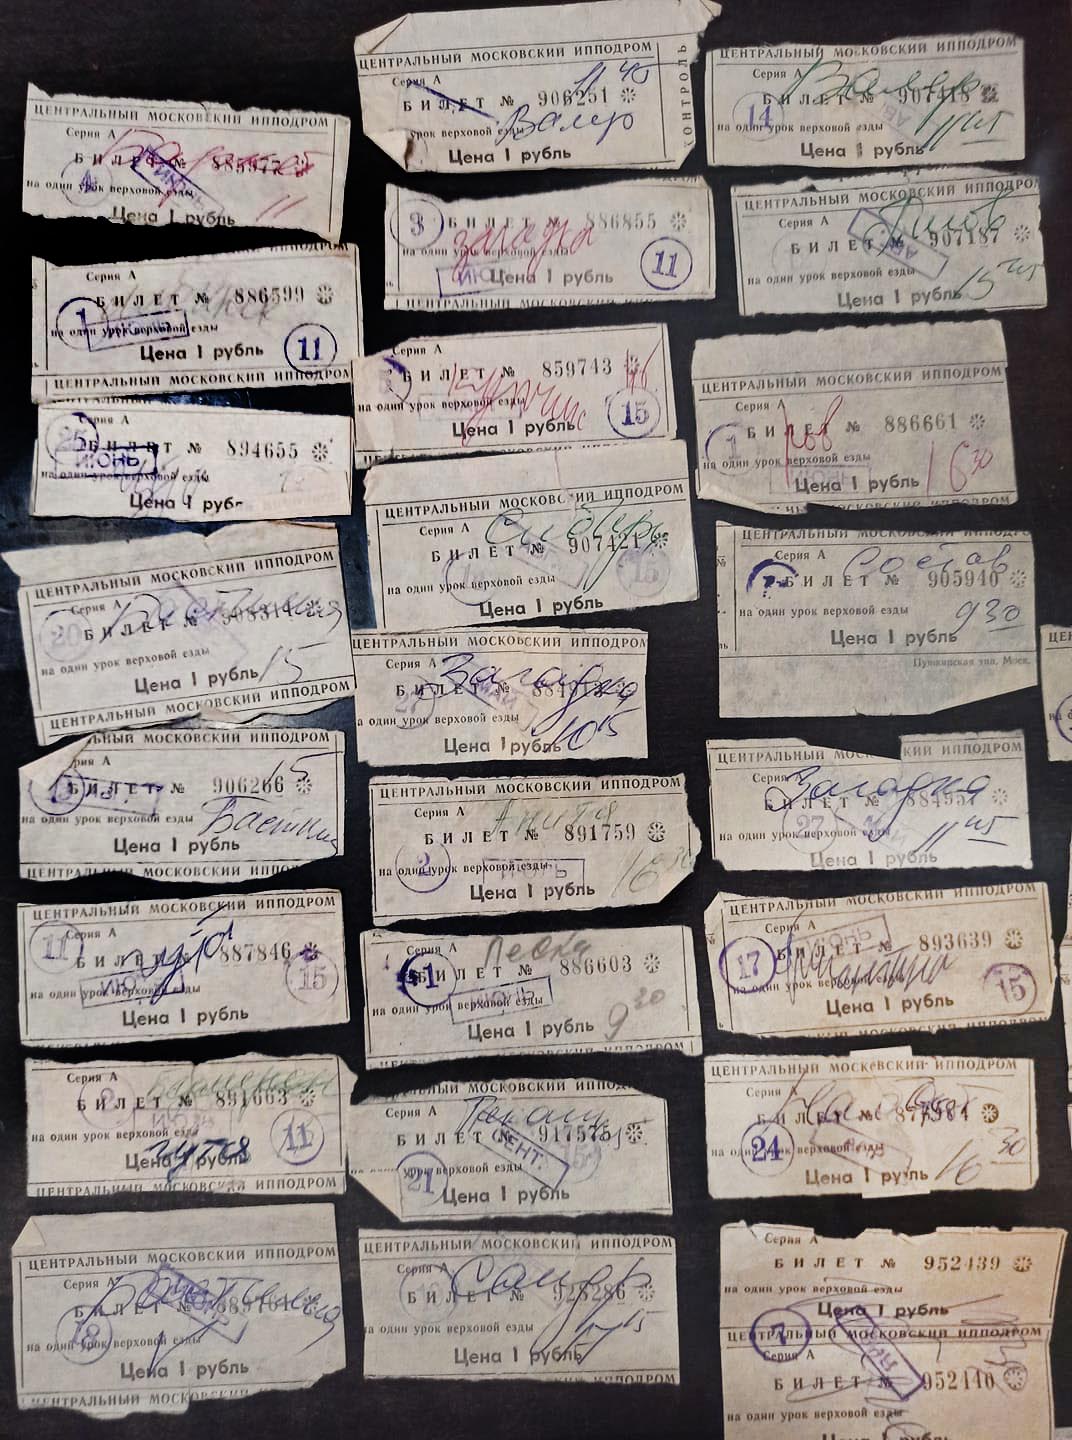 ЦЕНТРАЛЬНЫЙ МОСКОВСКИЙ ИППОДРОМ
БИЛЕТ №
на один урок верховой езды
Цена 1 рубль
11
Серия А
БИЛЕТ № 886599
на один урок верховой езды
Цена 1 рубль
1
11
ЦЕНТРАЛЬНЫЙ МОСКОВСКИЙ ИППОДРОМ
Серия А
25
БИЛЕТ № 894655
ИЮНЬ
на один урок верховой езды
Цена 1 руб
ЦЕНТРАЛЬНЫЙ МОСКОВСКИЙ ИППОДРОМ
Серия А
20
БИЛЕТ № 908314
на один урок верховой езды
Цена 1 рубль
15
ЦЕНТРАЛЬНЫЙ МОСКОВСКИЙ ИППОДРОМ
ЬНЫЙ МОСКОВСКИЙ ИППОДРОМ
рия А
БИЛЕТ № 906266
15
на один урок верховой езды
Цена 1 рубль
ЦЕНТРАЛЬНЫЙ МОСКОВСКИЙ ИППОДРОМ
Серия А
11
БИЛЕТ № 887846
на один урок верховой езды
15
Цена 1 рубль
Серия А
БИЛЕТ № 891663
ИЮНЬ
на один урок верховой езды
11
Цена 1 рубль
ЦЕНТРАЛЬНЫЙ МОСКОВСКИЙ ИППОДРОМ
ЦЕНТРАЛЬНЫЙ МОСКОВСКИЙ ИППОДРОМ
Серия А
БИЛЕТ №
18
на один урок верховой езды
Цена 1 рубль
ЦЕНТРАЛЬНЫЙ МОСКОВСКИЙ ИППОДРОМ
КОНТРОЛЬ
Серия А
11 45
БИЛЕТ № 906251
урок верховой езды
Цена 1 рубль
3
БИЛЕТ № 886855
Загадка
на один урок верховой езды
11
Цена 1 рубль
ЦЕНТРАЛЬНЫЙ МОСКОВСКИЙ ИППОДРОМ
Серия А
БИЛЕТ № 859743
на один урок верховой езды
15
Цена 1 рубль
ЦЕНТРАЛЬНЫЙ МОСКОВСКИЙ ИППОДРОМ
Серия А
Сибирь
БИЛЕТ № 907421
на один урок верховой езды
15
Цена 1 рубль
ЦЕНТРАЛЬНЫЙ МОСКОВСКИЙ ИППОДРОМ
Серия А
Загадка
БИЛЕТ №
МАЙ
27
на один урок верховой езды
Цена 1 рубль
ЦЕНТРАЛЬНЫЙ МОСКОВСКИЙ ИППОДРОМ
Серия А
БИЛЕТ № 891759
2
на один урок верховой езды
Цена 1 рубль
16 30
Серия А
БИЛЕТ № 886603
1
на один урок верховой езды
Цена 1 рубль
9 30
ЦЕНТРАЛЬНЫЙ МОСКОВСКИЙ ИППОДРОМ
Серия А
БИЛЕТ № 917575
СЕНТ.
21
урок верховой езды
Цена 1 рубль
ЦЕНТРАЛЬНЫЙ МОСКОВСКИЙ ИППОДРОМ
Серия А
БИЛЕТ № 928286
на один урок верховой езды
Цена 1 рубль
ЦЕНТРАЛЬНЫЙ МОСКОВСКИЙ ИППОДРОМ
Серия А
БИЛЕТ № 907418
14
на один урок верховой езды
11 45
Цена 1 рубль
ЦЕНТРАЛЬНЫЙ МОСКОВСКИЙ ИППОДРОМ
Серия А
БИЛЕТ № 907187
на один урок верховой езды
15 45
Цена 1 рубль
ЦЕНТРАЛЬНЫЙ МОСКОВСКИЙ ИППОДРОМ
Серия А
БИЛЕТ № 886661
1
на один урок верховой езды
Цена 1 рубль
16 30
ЦЕНТРАЛЬНЫЙ МОСКОВСКИЙ ИППОДРОМ
Серия А
Состав
БИЛЕТ № 905940
на один урок верховой езды
9 30
Цена 1 рубль
Пушкинская тип. Моск.
ЦЕНТРАЛЬНЫЙ МОСКОВСКИЙ ИППОДРОМ
Серия
Загадка
27
на один урок верховой езды
11 45
Цена 1 рубль
ЦЕНТРАЛЬНЫЙ МОСКОВСКИЙ ИППОДРОМ
Серия А
ИЮНЬ
БИЛЕТ № 893639
17
на один урок верховой езды
15
Цена 1 рубль
ЦЕНТРАЛЬНЫЙ МОСКОВСКИЙ ИППОДРОМ
Серия А
БИЛЕТ №
24
на один урок верховой езды
16 30
Цена 1 рубль
Серия А
БИЛЕТ № 952439
на один урок верховой езды
Цена 1 рубль
7
ЦЕНТРАЛЬНЫЙ МОСКОВСКИЙ ИППОДРОМ
Серия А
БИЛЕТ № 952440
на один урок верховой езды